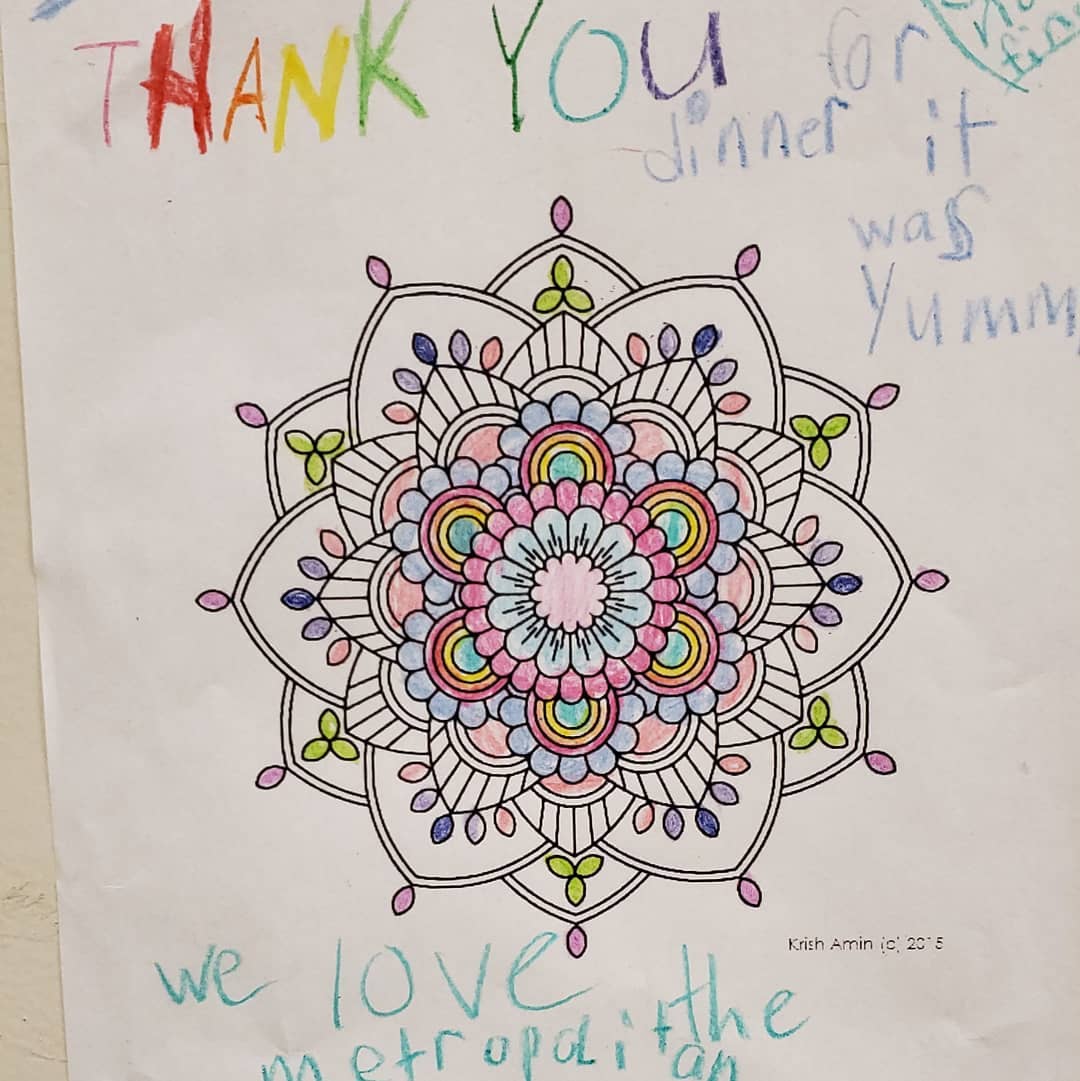 THANK YOU for
dinner it
was
Yummy
Krish Amin (c) 2015
we love
the
metropolitan